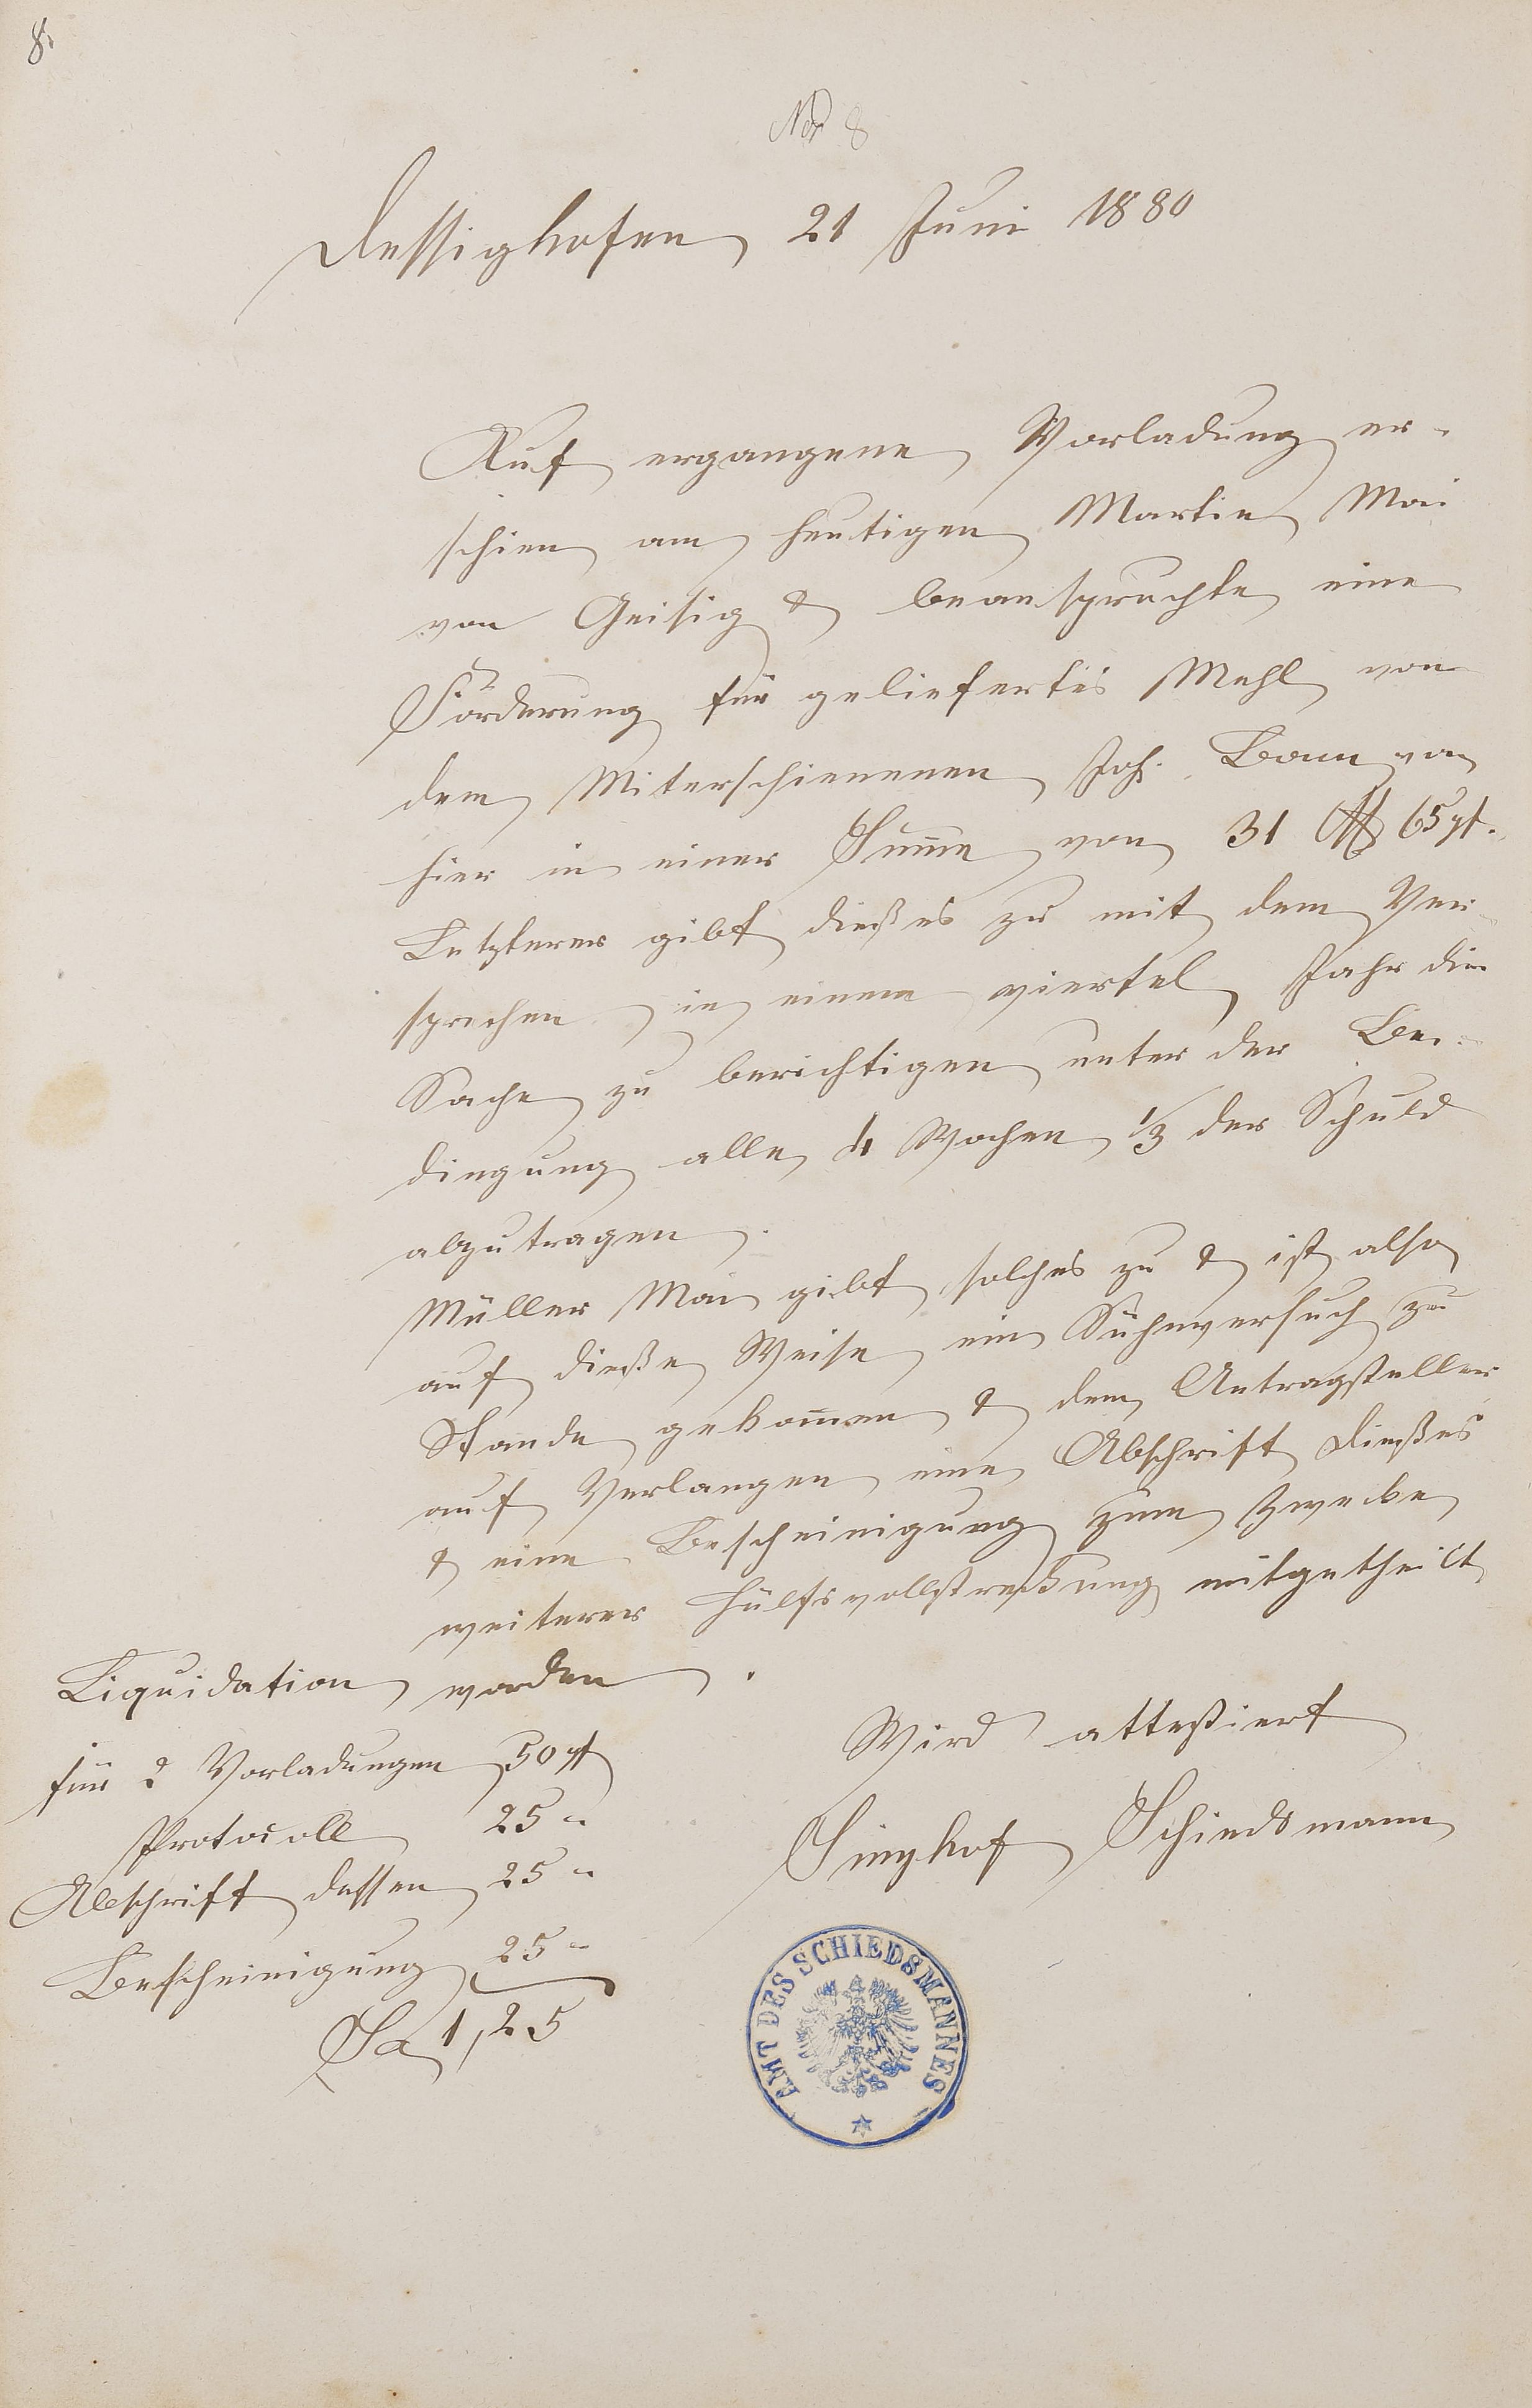 8.
No 8
Dessighofen, 21 Juni 1880
Auf ergangene Vorladung er-
schien am heutigen Martin Mai
von Geisig & beanspruchte eine
Förderung für geliefertes Mehl von
dem Miterschienenen Joh. Bonn von
hier in einer Sum̅e von 31 M 65 ₰.
Letzterer gibt dießes zu mit dem Ver-
sprechen in einem viertel Jahr die
Sache zu berichtigen unter der Be-
dingung alle 4 Wochen 1/3 der Schuld
abzutragen.
Müller Mai gibt solches zu & ist also
auf dieße Weise ein Sühnversuch zu
Stande gekom̅en & dem Antragsteller
auf Verlangen eine Abschrift dießes
& eine Bescheinigung zum Zwecke
weiterer Hülfsvollstreckung mitgetheilt
worden.
Wird attestiert
Singhof Schiedsmann
Liquidation
für 2 Vorladungen 50 ₰
Protocoll 25 "
Abschrift dessen 25 "
Bescheinigung 25 "
Sa 1,25
AMT DES SCHIEDSMANNES